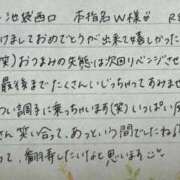 池袋西口 本指名W様 R8
けましておめでとうが出来て嬉しかった
笑)おつまみの失態は次回リベンジさせ
最後までたくさんいじっちゃいます
つい調子に乗っちゃいます(笑)いっぱい
さん笑い合て、あっとい う間でしたね
って、して行けなと思います